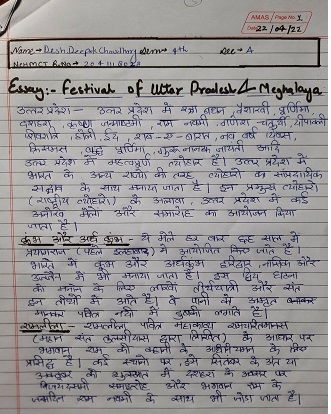 AMAS Page No. 1
Date 22/04/22
Name → Desh Deepak Chaudhary Sem → 4th Sec → A
NCHMCT R.No →
Essay:- Festival of Uttar Pradesh & Meghalaya
उत्तर प्रदेश - उत्तर प्रदेश में रक्षा बंधन, वैशाखी पूर्णिमा
दशहरा, कृष्णा जन्माष्टमी, राम नवमी, गणेश चतुर्थी, दीपावली
शिवरात्रि, होली, ईद, शब-ए-बारात, नव वर्ष दिवस,
क्रिसमस बुद्ध पूर्णिमा, गुरु नानक जयंती आदि
उत्तर प्रदेश में महत्वपूर्ण त्योहार हैं। उत्तर प्रदेश में
भारत के अन्य राज्यों की तरह त्योहारों को सांप्रदायिक
सद्भाव के साथ मनाया जाता है। इन प्रमुख त्योहारों
(राष्ट्रीय त्योहारों) के अलावा, उत्तर प्रदेश में कई
मेलों और समारोह का आयोजन किया
जाता है।
कुंभ और अर्ध कुंभ - ये मेले हर बारह छह साल में
प्रयागराज (पहले इलाहाबाद) में आयोजित किए जाते हैं।
भारत में कुंभ और अर्धकुंभ हरिद्वार, नासिक और
उज्जैन में भी मनाया जाता है। इस
को मनाने के लिए लाखों तीर्थयात्री और संत
इन तीर्थों में आते हैं। वे पानी को अमृत
मानकर पवित्र नदी में डुबकी लगाते हैं।
रामलीला - रामलीला पवित्र महाकाव्य रामचरितमानस
(महान संत तुलसीदास द्वारा लिखित) के आधार पर
भगवान राम की कहानी के अभिनय के लिए
प्रसिद्ध है। कई स्थानों पर इसे सितंबर के अंत या
अक्तूबर की शुरुआत में दशहरा के अवसर पर
और भगवान राम के
जन्मदिन राम नवमी के साथ भी जोड़ा जाता है।